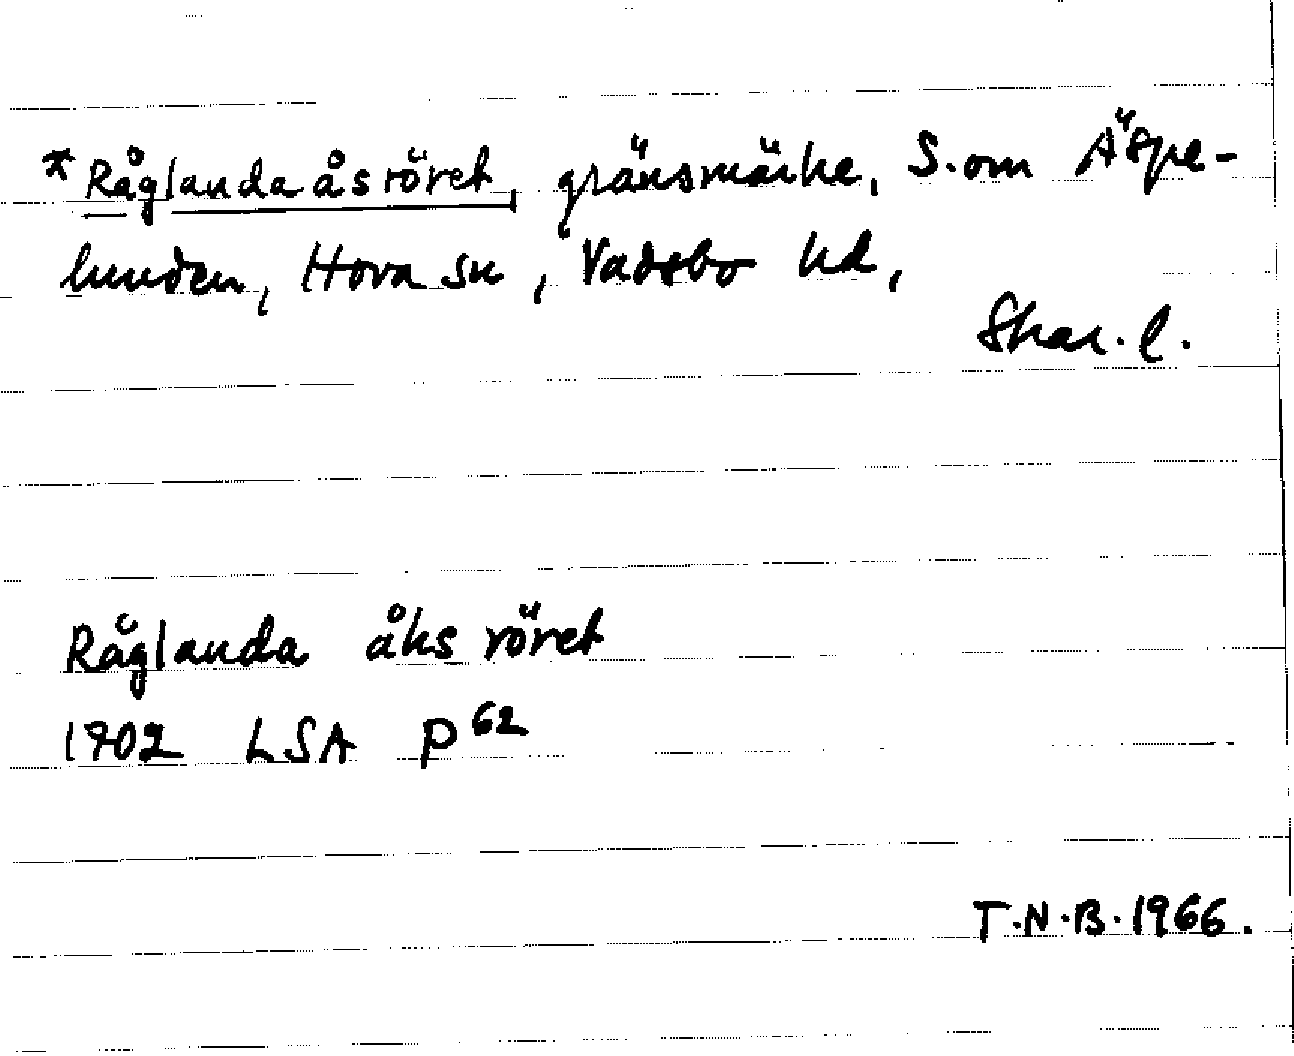 *Råglanda åsröret, gränsmärke, S. om Äspe-
lunden, Hova sn, Vadsbo hd,
Skar. l.
Råglanda åhs röret
1702 LSA P 62
T.N.B. 1966.